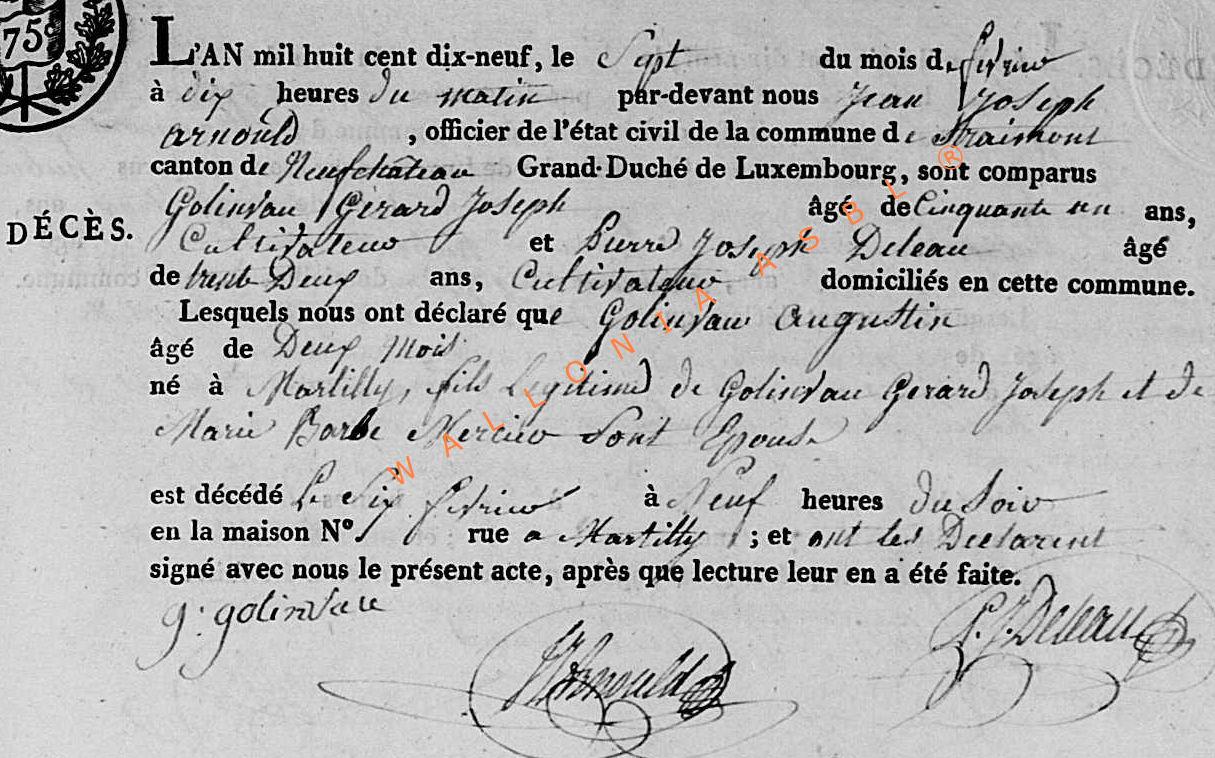 75
L'AN mil huit cent dix-neuf, le Sept du mois de fevrier
à dix heures du matin par-devant nous Jean Joseph
arnould , officier de l'état civil de la commune de Straimont
canton de Neufchâteau Grand-Duché de Luxembourg, sont comparus
Golinvau Gerard Joseph âgé de Cinquante un ans,
DÉCÈS.
Cultivateur et Pierre Joseph Deleau âgé
de trente Deux ans, Cultivateur domiciliés en cette commune.
Lesquels nous ont déclaré que Golinvau augustin
âgé de Deux Mois
né à Martilly, fils Legitime de Golinvau Gerard Joseph et de
Marie Barbe Mercier Sont Epouse
est décédé Le Six fevrier à Neuf heures du Soir
en la maison N° rue a Martilly ; et ont les Declarent
signé avec nous le présent acte, après que lecture leur en a été faite.
g. golinvau
P. J. Deleau
JJArnould
WALLONIA ASBL ®